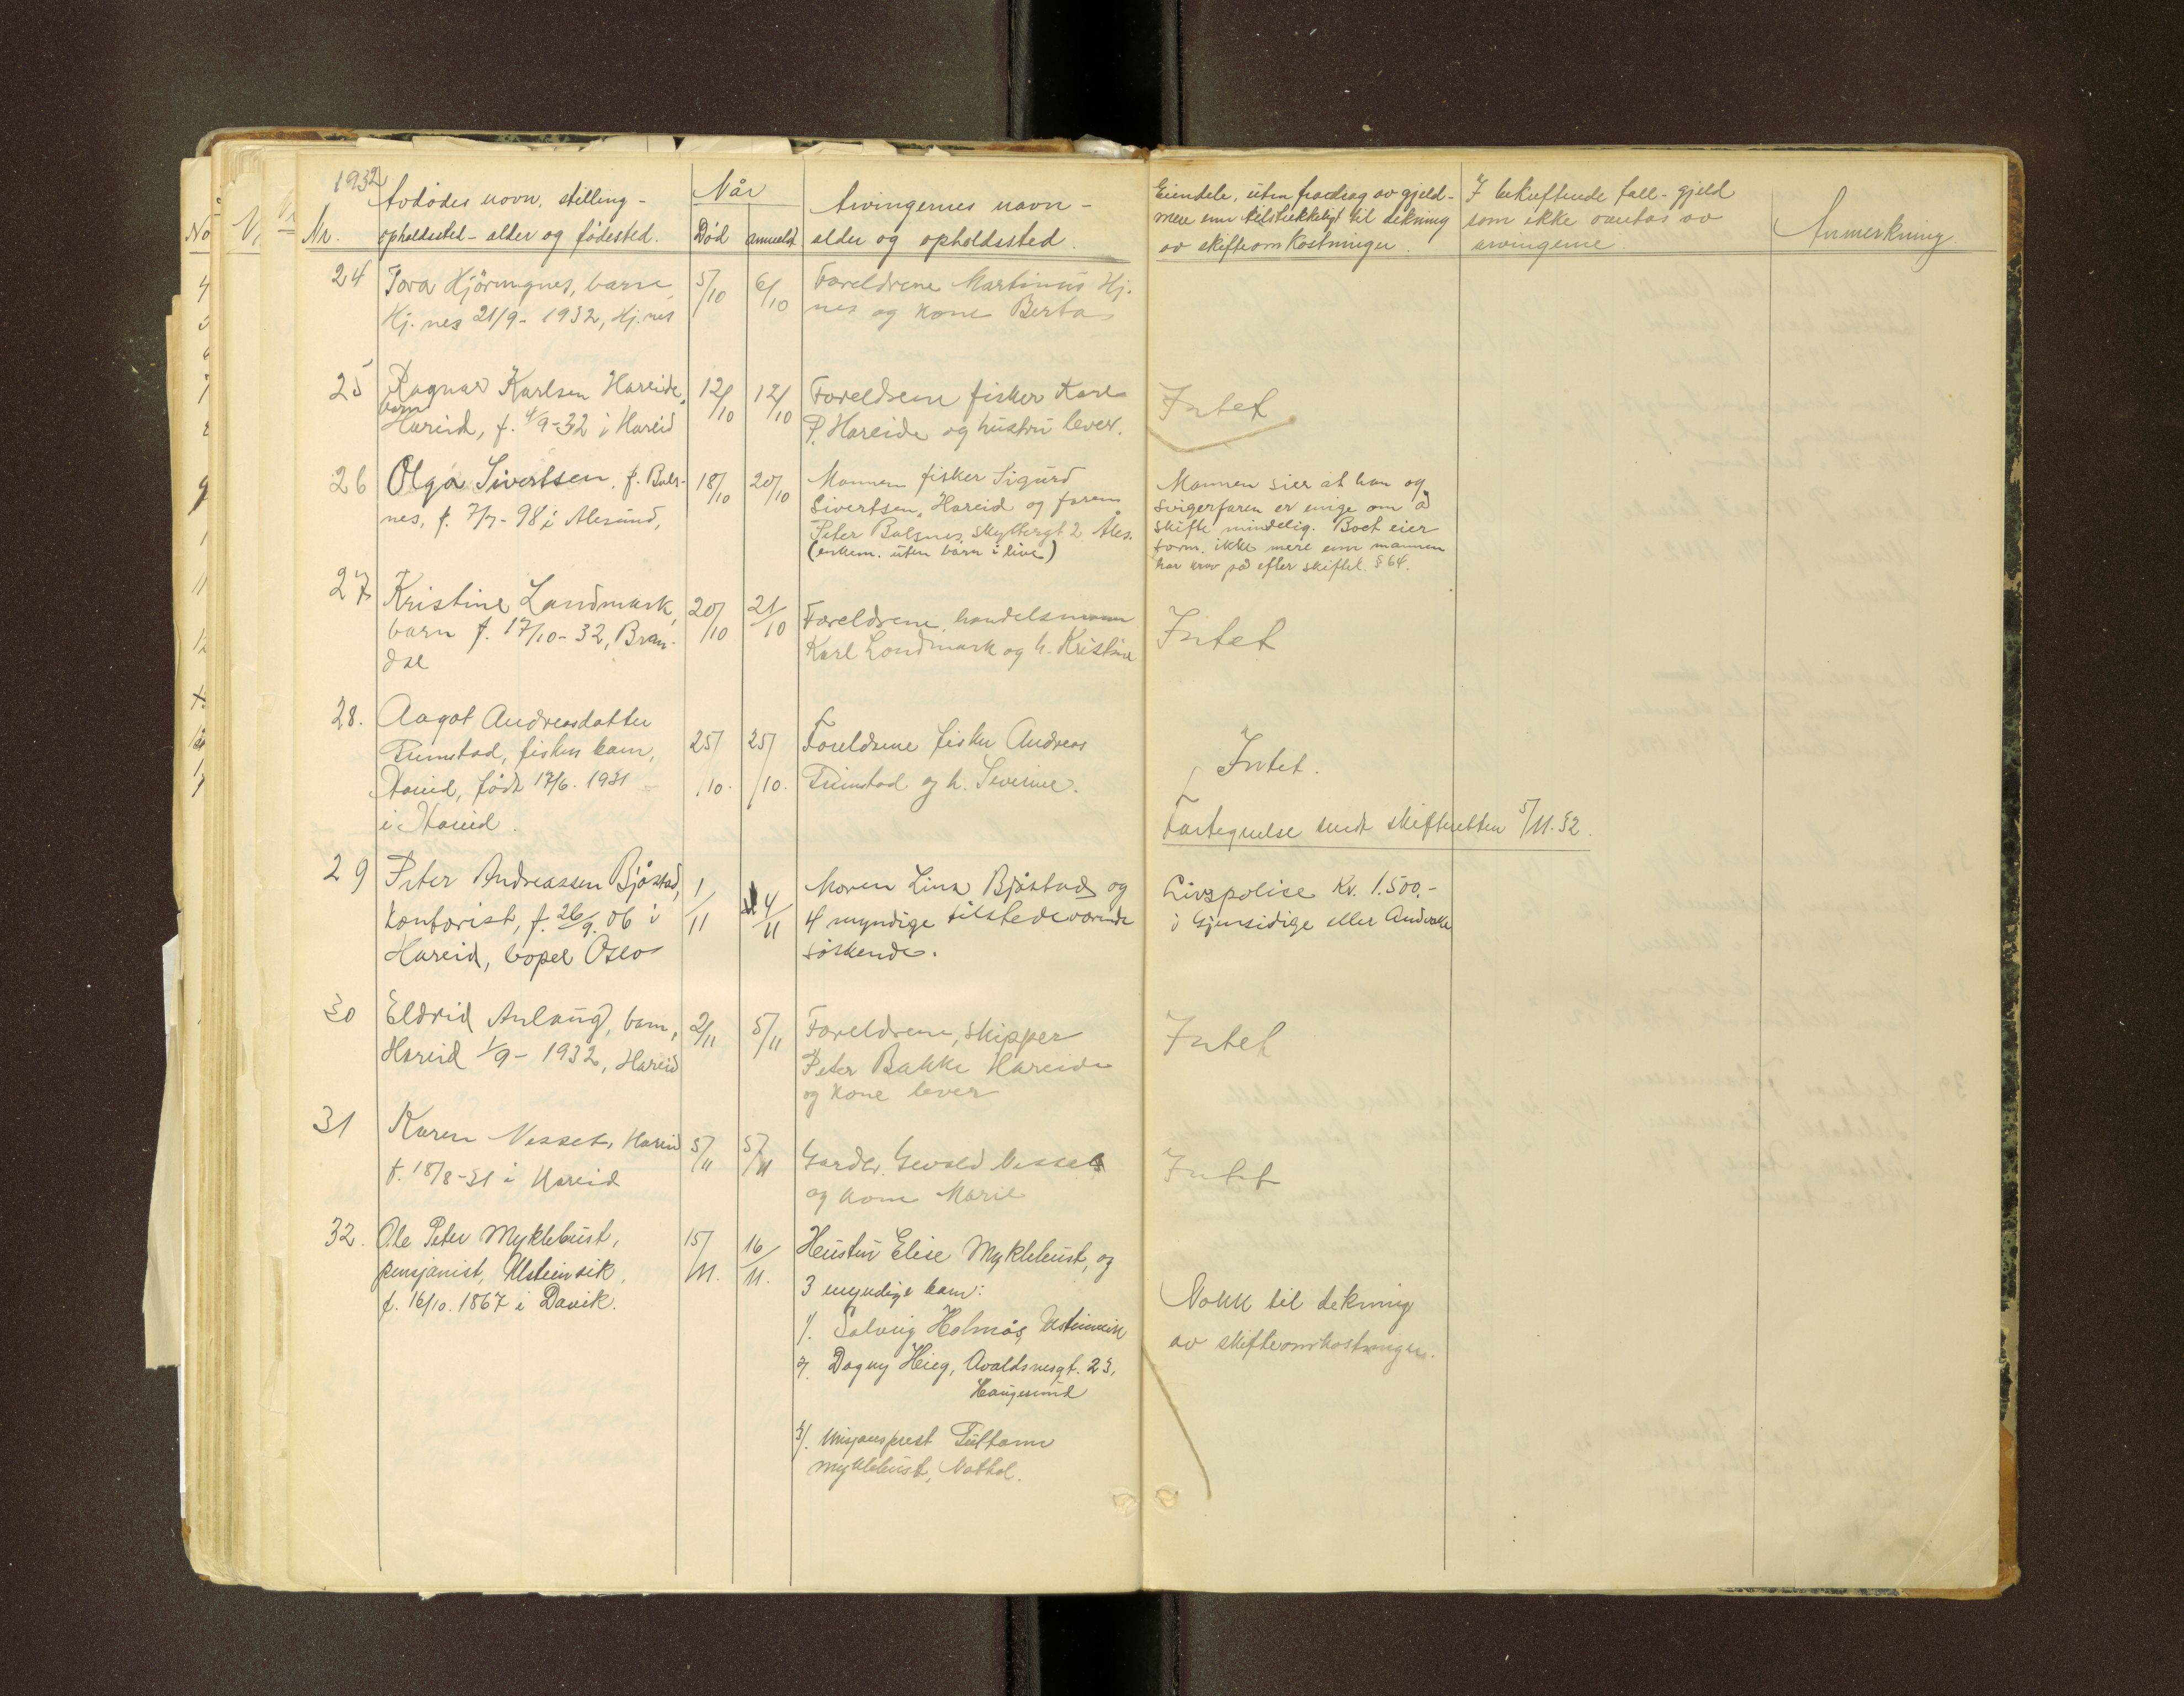 1932
Nr.
Avdødes navn, stilling -
opholdssted - alder og fødested.
Når
Død
anmeldt
Arvingernes navn -
alder og opholdssted.
Eiendele, uten fradrag av gjeld -
mere enn tilstrekkeligt til dekning
av skifteomkostninger.
I bekreftende fall - gjeld
som ikke overtas av
arvingerne
Anmerkning
24 Tora Hjörungnes, barn 5/10 6/10 Foreldrene Martinus Hj.
Hj. nes 21/9 - 1932, Hj. nes nes og kone Berta
25 Ragnar Karlsen Hareide, 12/10 12/10 Foreldrene fisker Karl Intet
barn
Hareid, f. 4/9-32 i Hareid P. Hareide og hustru lever.
26 Olga Sivertsen, f. Bals- 18/10 20/10 Mannen fisker Sigurd Mannen sier at han og
nes, f. 7/7-98 i Ålesund, Sivertsen, Hareid og faren svigerfaren er enige om å
Peter Balsnes, Skyttergt 2 Åles. skifte mindelig. Boet eier
(enkem. uten barn i live) form. ikke mere enn mannen
har krav på efter skiftel. § 64.
27 Kristine Landmark, 20/10 21/10 Foreldrene, handelsmann Intet
barn f. 17/10-32, Bran- Karl Landmark og h. Kristine
dal
28. Aagot Andreasdatter
fiskers barn, 25/10. 25/10. Foreldrene fisker Andreas Intet.
Hareid, født 17/6. 1931 og h. Severine.
i Hareid. Fortegnelse sendt skifteretten 5/11.32.
29 Peter Andreassen Bjåstad, 1/11 4/11 Moren Lina Bjåstad og Livspolise Kr. 1.500.-
Kontorist, f. 26/9. 06 i 4 myndige tilstedeværende i Gjensidige eller Andvake
Hareid, bopel Oslo søskende.
30 Eldrid Anlaug, barn, 2/11 5/11 Foreldrene, skipper Intet
Hareid 1/9 - 1932, Hareid Peter Bakke Hareide
og kone lever
31 Karen Nesset, Hareid 5/11 5/11 Gardbr. Gevald Nesset Intet
f. 18/8-31 i Hareid og kone Marie
32. Ole Peter Myklebust, 15/11. 16/11. Hustru Elise Myklebust, og
pensjonist, Ulsteinvik, 3 myndige barn: Nokk til dekning
f. 16/10. 1867 i Davik. 1/. Solveig Holmås, Ulsteinvik av skifteomkostninger.
2/. Dagny Heieg, Avaldsnesgt. 23,
Haugesund
3/. Misjonsprest
Myklebust, Nathal.